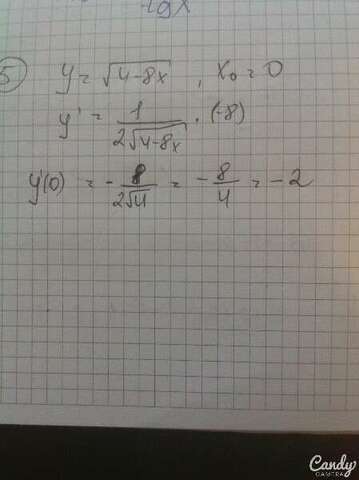 tgx
5 y = √(4-8x) , x₀ = 0
y' = 1/(2√(4-8x)) · (-8)
y'(0) = -8/(2√4) = -8/4 = -2
Candy
CAMERA